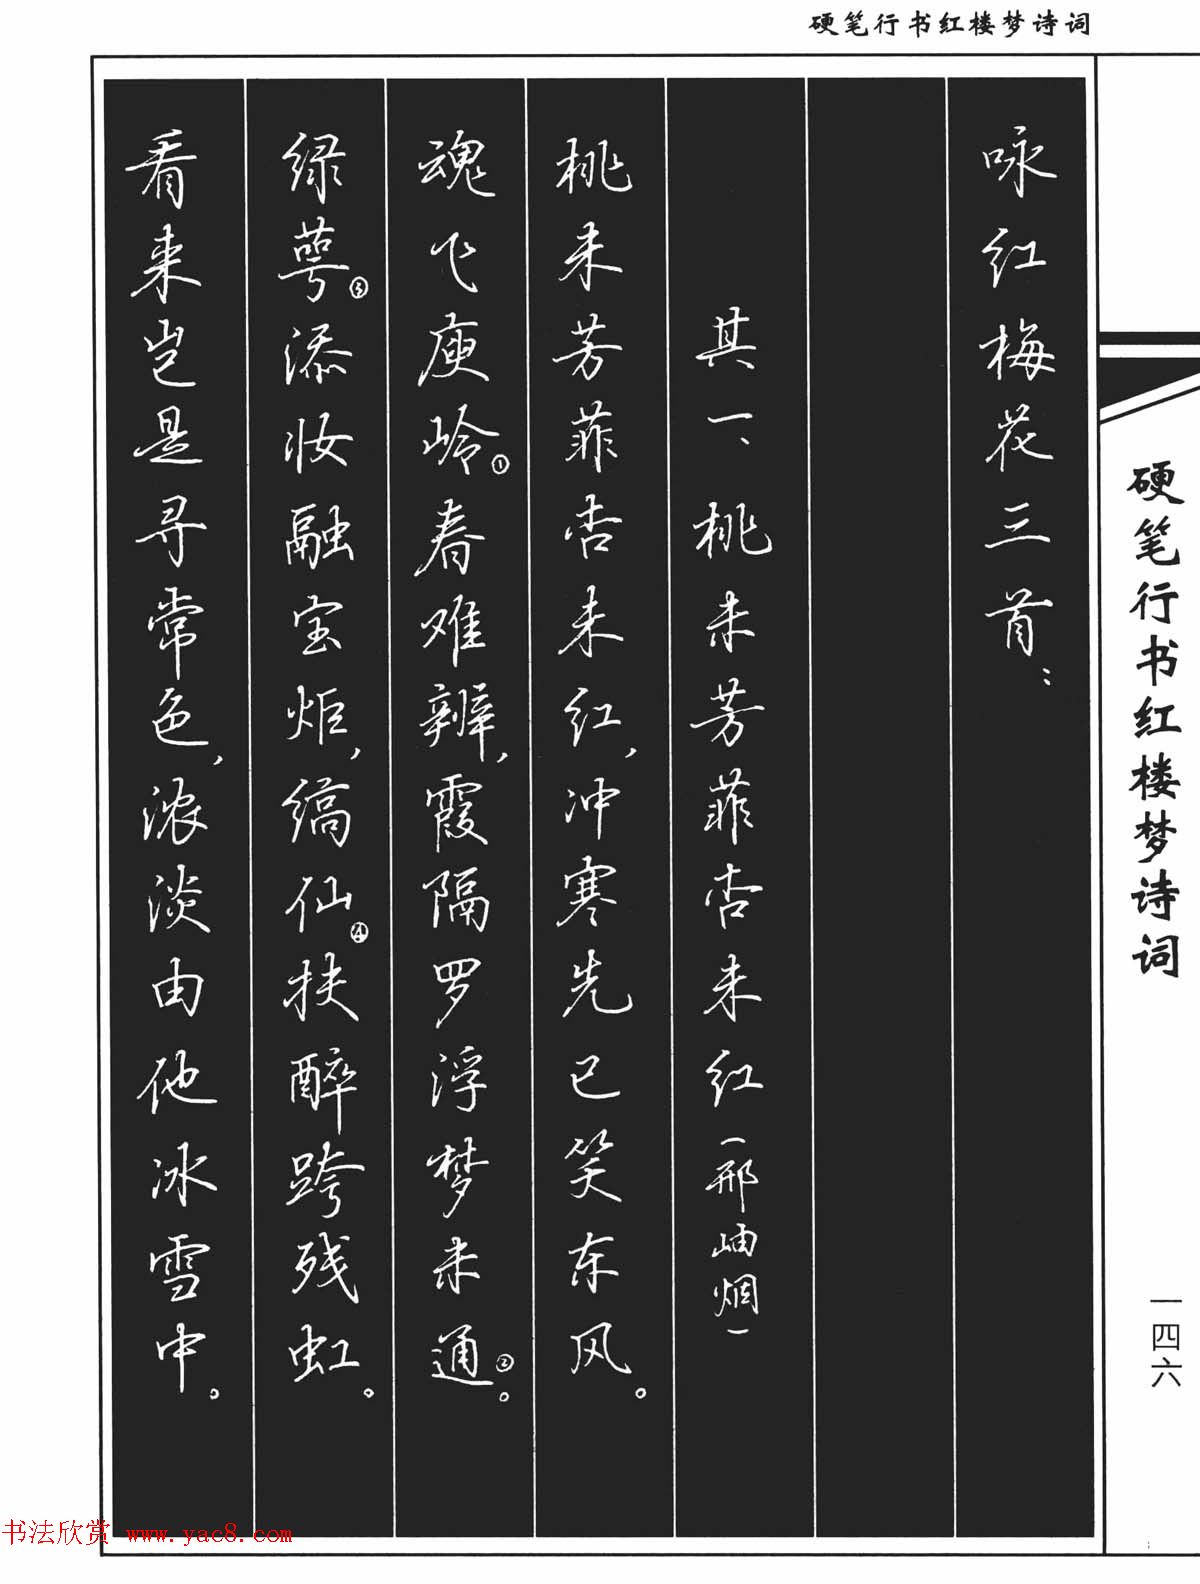 硬笔行书红楼梦诗词
咏红梅花三首：
其一、桃未芳菲杏未红（邢岫烟）
桃未芳菲杏未红，冲寒先已笑东风。
魂飞庾岭①春难辨，霞隔罗浮梦未通②。
绿萼③添妆融宝炬，缟仙④扶醉跨残虹。
看来岂是寻常色，浓淡由他冰雪中。
硬笔行书红楼梦诗词
一四六
书法欣赏 www.yac8.com